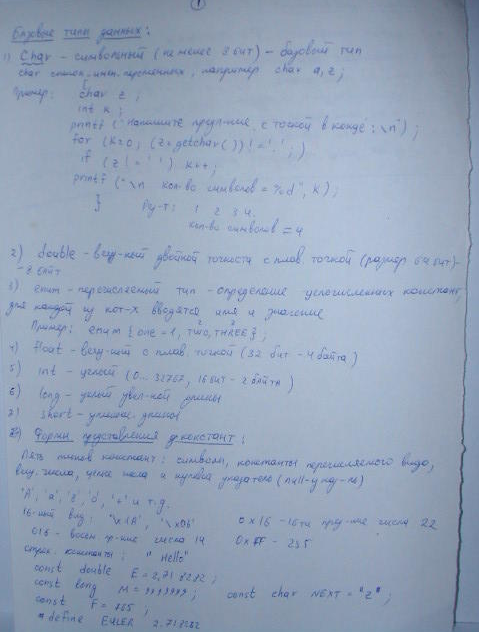 1
Базовые типы данных:
1) Char - символьный (не менее 8 бит) - базовый тип
char список имен переменных, например char a, z;
Пример: char z;
int k;
printf ("Напишите предл-ние с точкой в конце: \n");
for (k=0; (z=getchar()) != '.';)
if (z != ' ') k++;
printf ("\n кол-во символов = %d", k);
} Рез-т: 1 2 3 4.
кол-во символов = 4
2) double - вещ-ный двойной точности с плав. точкой (размер 64 бит) -
- 8 байт
3) enum - перечисляемый тип - определение целочисленных констант,
для каждой из кот-х вводятся имя и значение
Пример: enum {one = 1, TWO, THREE};
4) float - вещ-ный с плав. точкой (32 бит - 4 байта)
5) int - целый (0... 32767, 16 бит - 2 байта)
6) long - целый увел-ной длины
7) short - длины
Формы представления констант:
Пять типов констант: символы, константы перечисляемого вида,
вещ. числа, целые числа и нулевой указатель (null-
'A', 'a', и т.д.
16-ный вид: 0x16 - числа 22
016 - восем. числа 14 0xFF - 255
строк. константы: "Hello"
const double E = 2,718282;
const long M = 9999999; const char NEXT = "Z";
const F = 765;
define EULER 2.718282